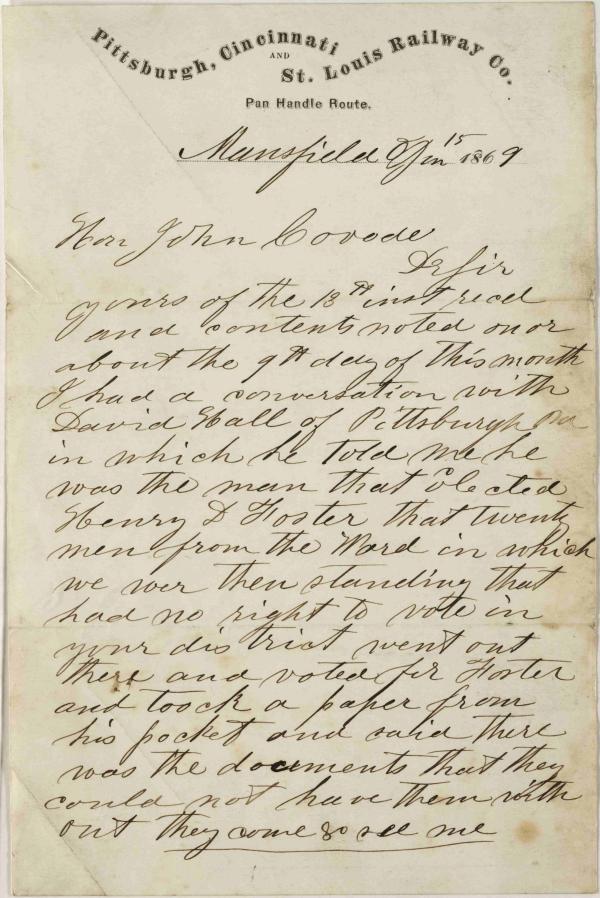 Pittsburgh, Cincinnati
AND
St. Louis Railway Co.
Pan Handle Route.
Mansfield Jan 15 1869
Hon John Covode
Dr Sir
yours of the 13th inst recd
and contents noted on or
about the 9th day of this month
I had a conversation with
David Hall of Pittsburgh Pa
in which he told me he
was the man that elected
Henry D Foster that twenty
men from the Ward in which
we wer then standing that
had no right to vote in
your district went out
there and voted for Foster
and toock a paper from
his pocket and said there
was the documents that they
could not have them with
out they come & see me